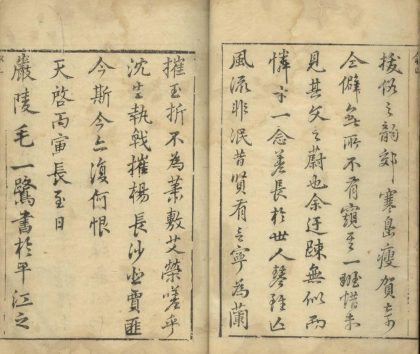 拔俗之韵郊寒島瘦賀奇
仝僻無所不有窺一斑惜未
見其文之蔚也余迂踈無似而
憐才一念差長於世人琴雖亾
風流非泯昔賢有言寧為蘭
摧玉折不為蕭敷艾榮嗟乎
沈生執戟摧楊長沙賈匪
今斯今亦復何恨
天啓丙寅長至日
巖陵毛一鷺書於平江之